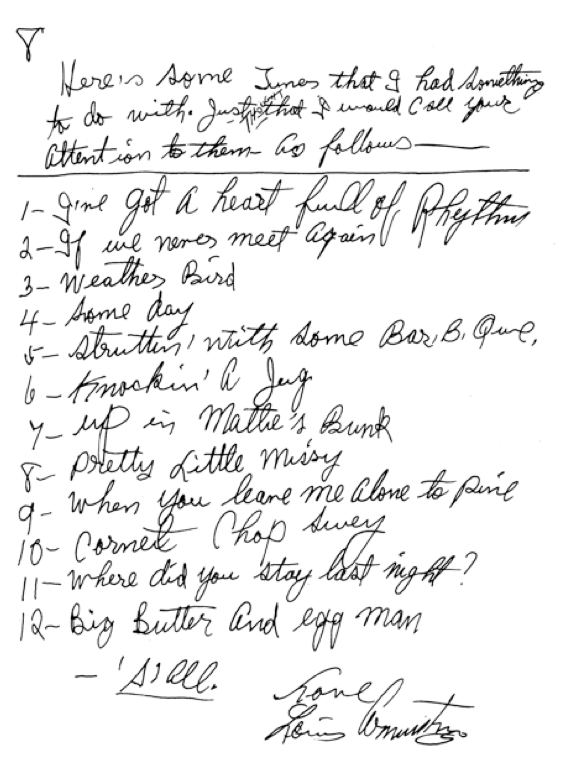 Here's some Tunes that I had something
to do with. Just that I would Call your
attention to them as follows—
1- I've got a heart full of Rhythm
2- If we never meet again
3- Weather Bird
4- Some day
5- Struttin' with some Bar, B, Que,
6- Knockin' A Jug
7- up in Mattie's Bunk
8- Pretty Little Missy
9- When you leave me alone to pine
10- Cornet Chop Suey
11- Where did you stay last night?
12- Big Butter And egg man
- 'S'all.
Louis Armstrong